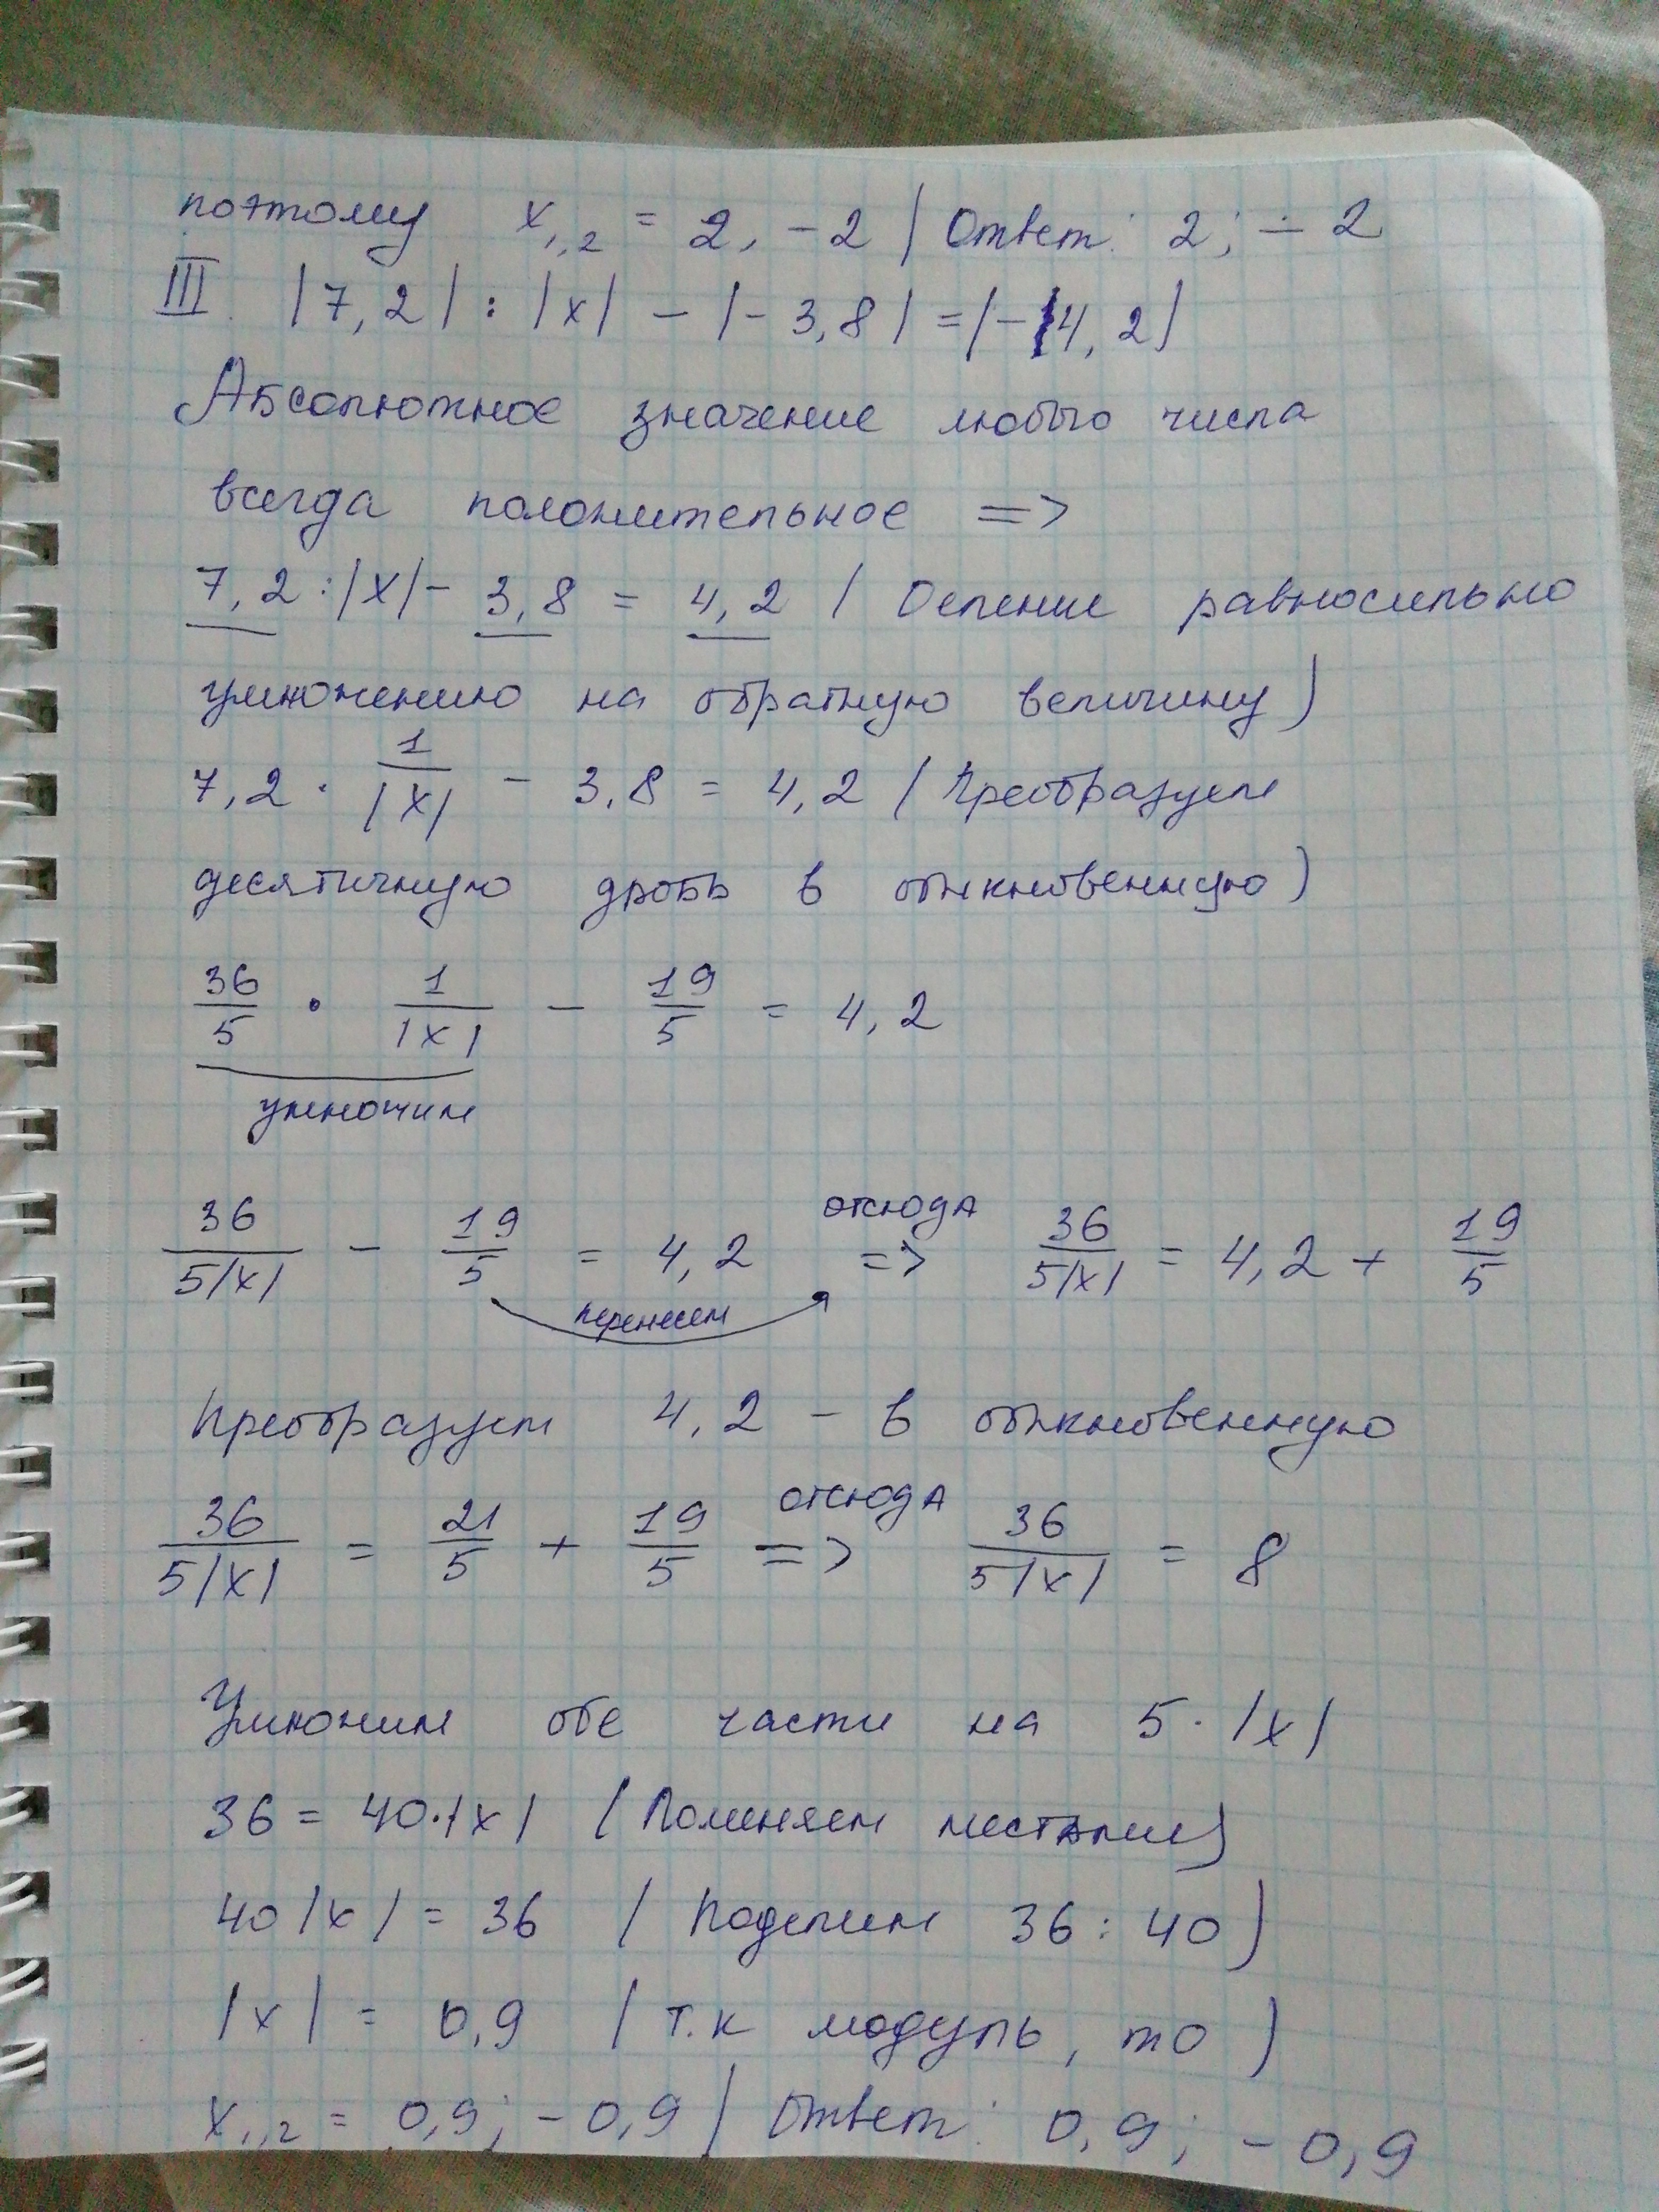 поэтому x₁,₂ = 2, -2 | Ответ: 2; -2
III. |7,2| : |x| - |-3,8| = |-4,2|
Абсолютное значение любого числа
всегда положительное =>
7,2 : |x| - 3,8 = 4,2 (Деление равносильно
умножению на обратную величину)
7,2 · 1/|x| - 3,8 = 4,2 (Преобразуем
десятичную дробь в обыкновенную)
36/5 · 1/|x| - 19/5 = 4,2
умножим
36/5|x| - 19/5 = 4,2 отсюда => 36/5|x| = 4,2 + 19/5
перенесем
Преобразуем 4,2 - в обыкновенную
36/5|x| = 21/5 + 19/5 отсюда => 36/5|x| = 8
Умножим обе части на 5·|x|
36 = 40·|x| (Поменяем местами)
40|x| = 36 (Поделим 36 : 40)
|x| = 0,9 (т.к модуль, то)
x₁,₂ = 0,9; -0,9 | Ответ: 0,9; -0,9